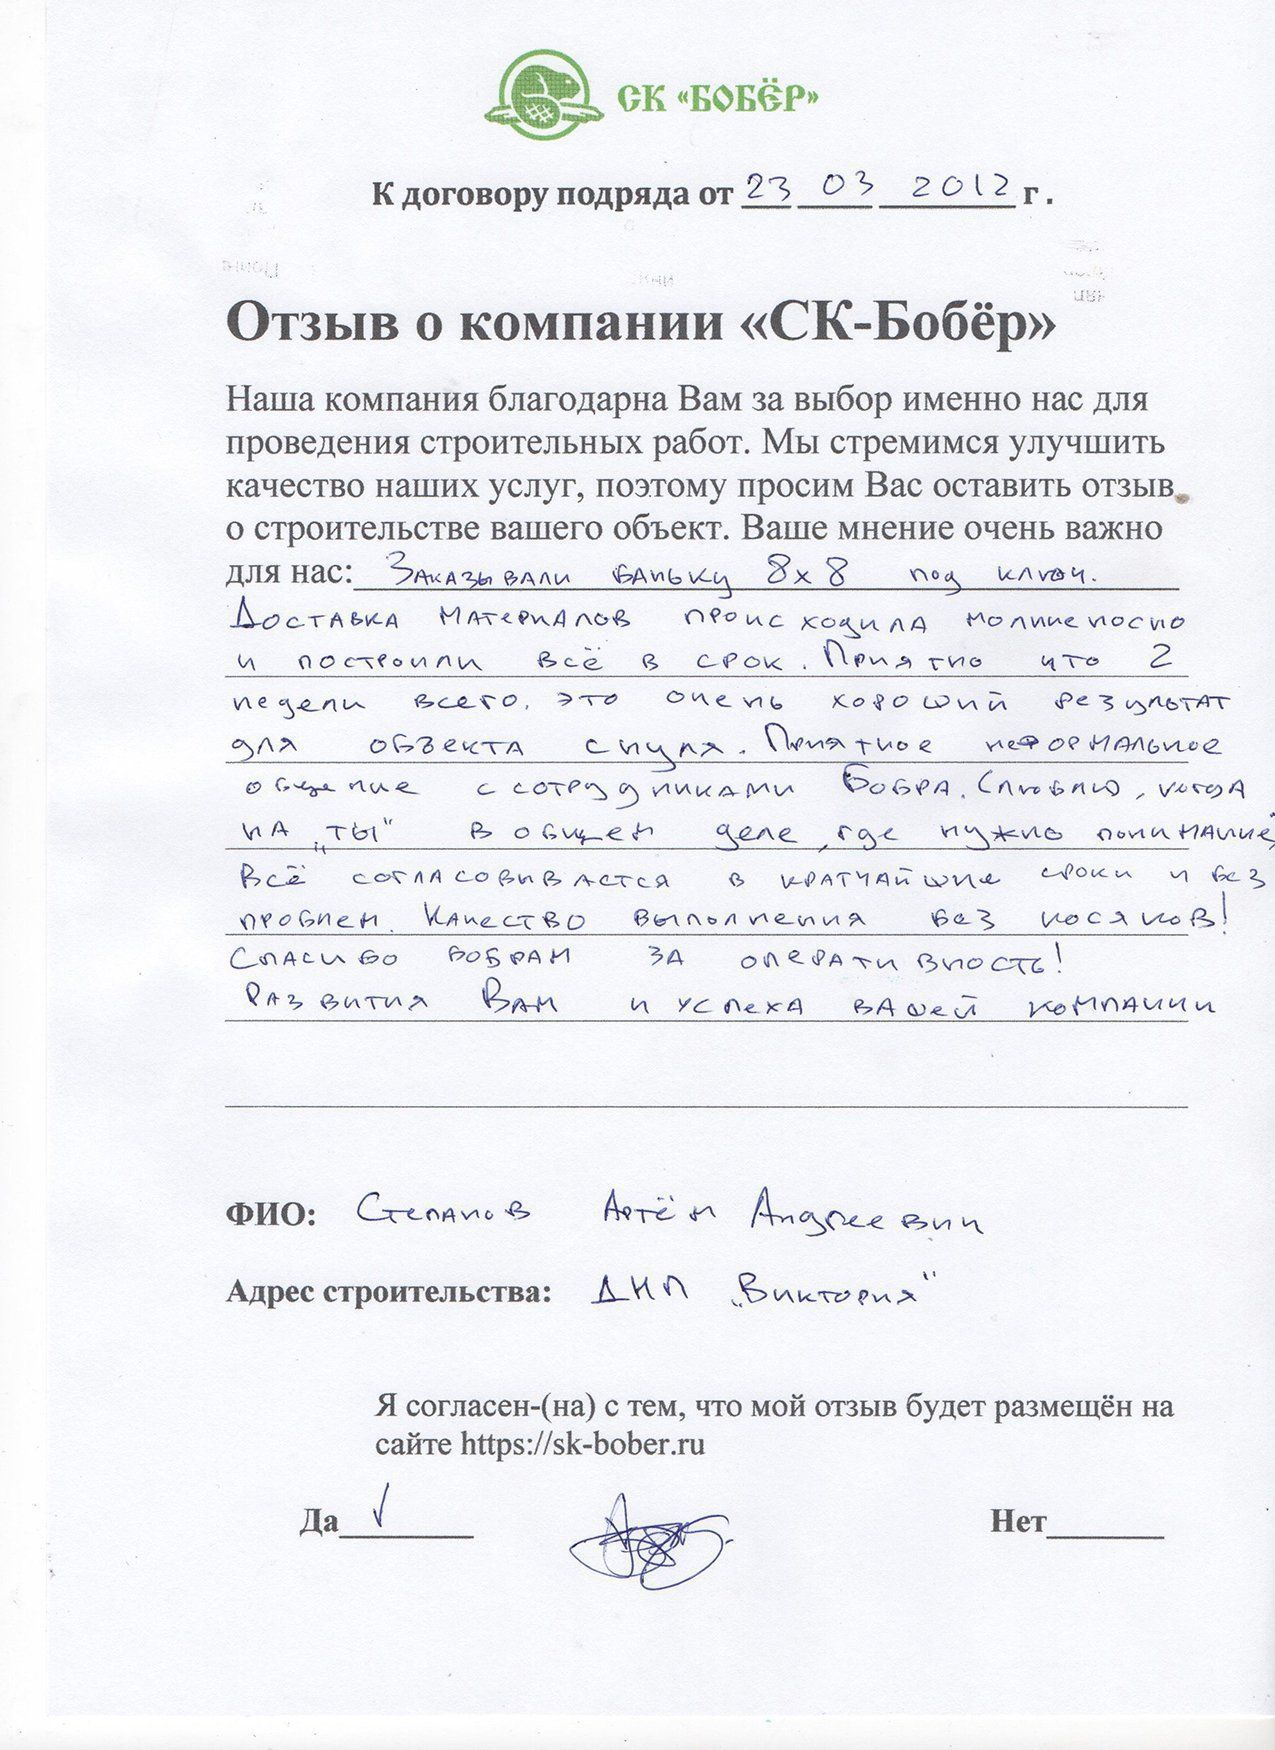 СК «БОБЁР»
К договору подряда от 23 03 2012 г .
Отзыв о компании «СК-Бобёр»
Наша компания благодарна Вам за выбор именно нас для
проведения строительных работ. Мы стремимся улучшить
качество наших услуг, поэтому просим Вас оставить отзыв
о строительстве вашего объект. Ваше мнение очень важно
для нас: Заказывали баньку 8x8 под ключ.
Доставка материалов происходила молниеносно
и построили всё в срок. Приятно что 2
недели всего. это очень хороший результат
для объекта с нуля. Приятное неформальное
общение с сотрудниками Бобра. Люблю, когда
на „ты“ в общем деле, где нужно понимание,
Всё согласовывается в кратчайшие сроки и без
проблем. Качество выполнения без косяков!
Спасибо бобрам за оперативность!
Развития Вам и успеха вашей компании
ФИО: Степанов Артём Андреевич
Адрес строительства: ДНП „Виктория“
Я согласен-(на) с тем, что мой отзыв будет размещён на
сайте https://sk-bober.ru
Да Нет